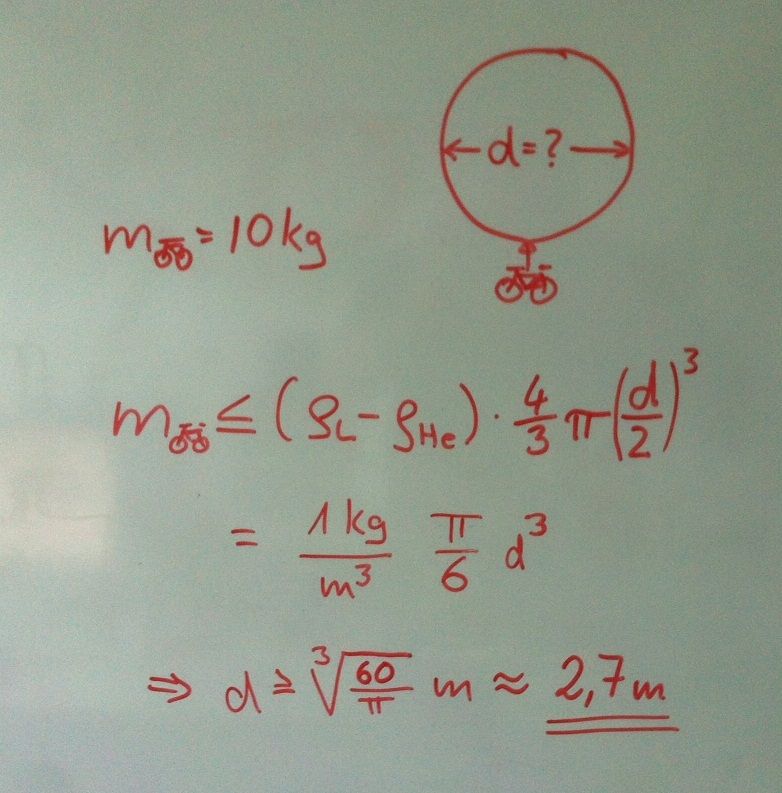 d = ?
m🚲 = 10 kg
m🚲 ≤ (ρL - ρHe) · 4/3 π (d/2)³
= 1 kg/m³ π/6 d³
⇒ d ≥ ³√(60/π) m ≈ 2,7 m